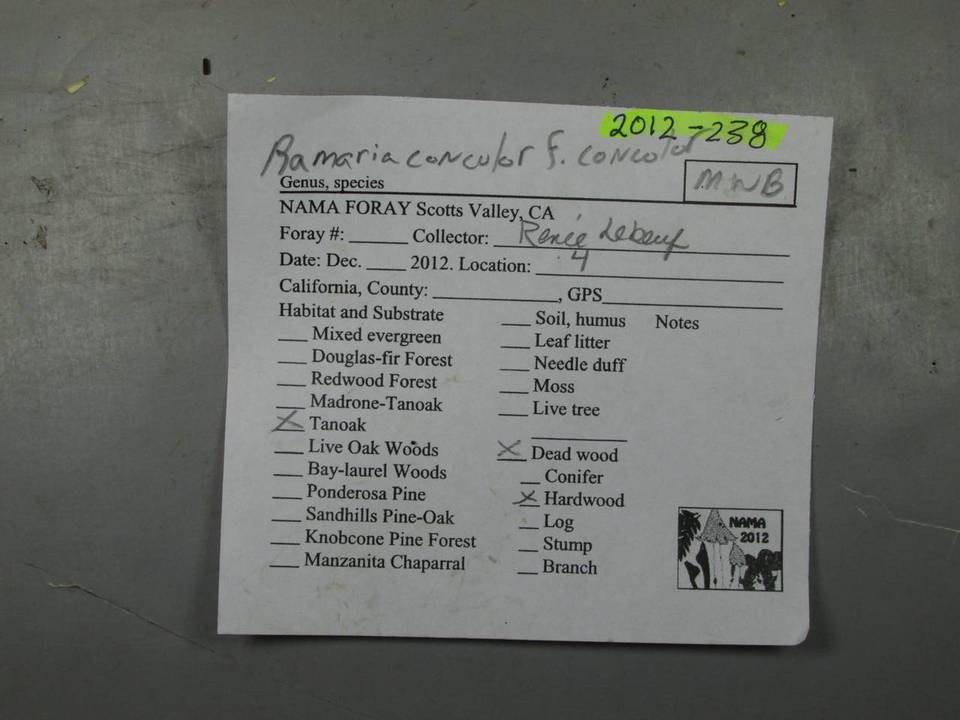 2012-238
Ramaria concolor f. concolor
Genus, species
MWB
NAMA FORAY Scotts Valley, CA
Foray #: ______ Collector: Renée Lebeuf
Date: Dec. ____ 2012. Location: 4
California, County: ____________, GPS____________
Habitat and Substrate
___ Mixed evergreen
___ Douglas-fir Forest
___ Redwood Forest
___ Madrone-Tanoak
X Tanoak
___ Live Oak Woods
___ Bay-laurel Woods
___ Ponderosa Pine
___ Sandhills Pine-Oak
___ Knobcone Pine Forest
___ Manzanita Chaparral
___ Soil, humus Notes
___ Leaf litter
___ Needle duff
___ Moss
___ Live tree
X Dead wood
__ Conifer
X Hardwood
__ Log
__ Stump
__ Branch
NAMA
2012